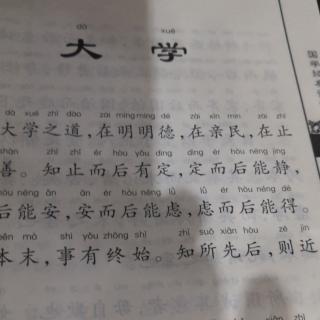 dà xué
大学
dà xué zhī dào zài míng míng dé zài qīn mín zài zhǐ
大学之道，在明明德，在亲民，在止
shàn zhī zhǐ ér hòu yǒu dìng dìng ér hòu néng jìng
善。知止而后有定，定而后能静，
hòu néng ān ān ér hòu néng lǜ lǜ ér hòu néng dé
后能安，安而后能虑，虑而后能得。
běn mò shì yǒu zhōng shǐ zhī suǒ xiān hòu zé jìn
本末，事有终始。知所先后，则近
国学经